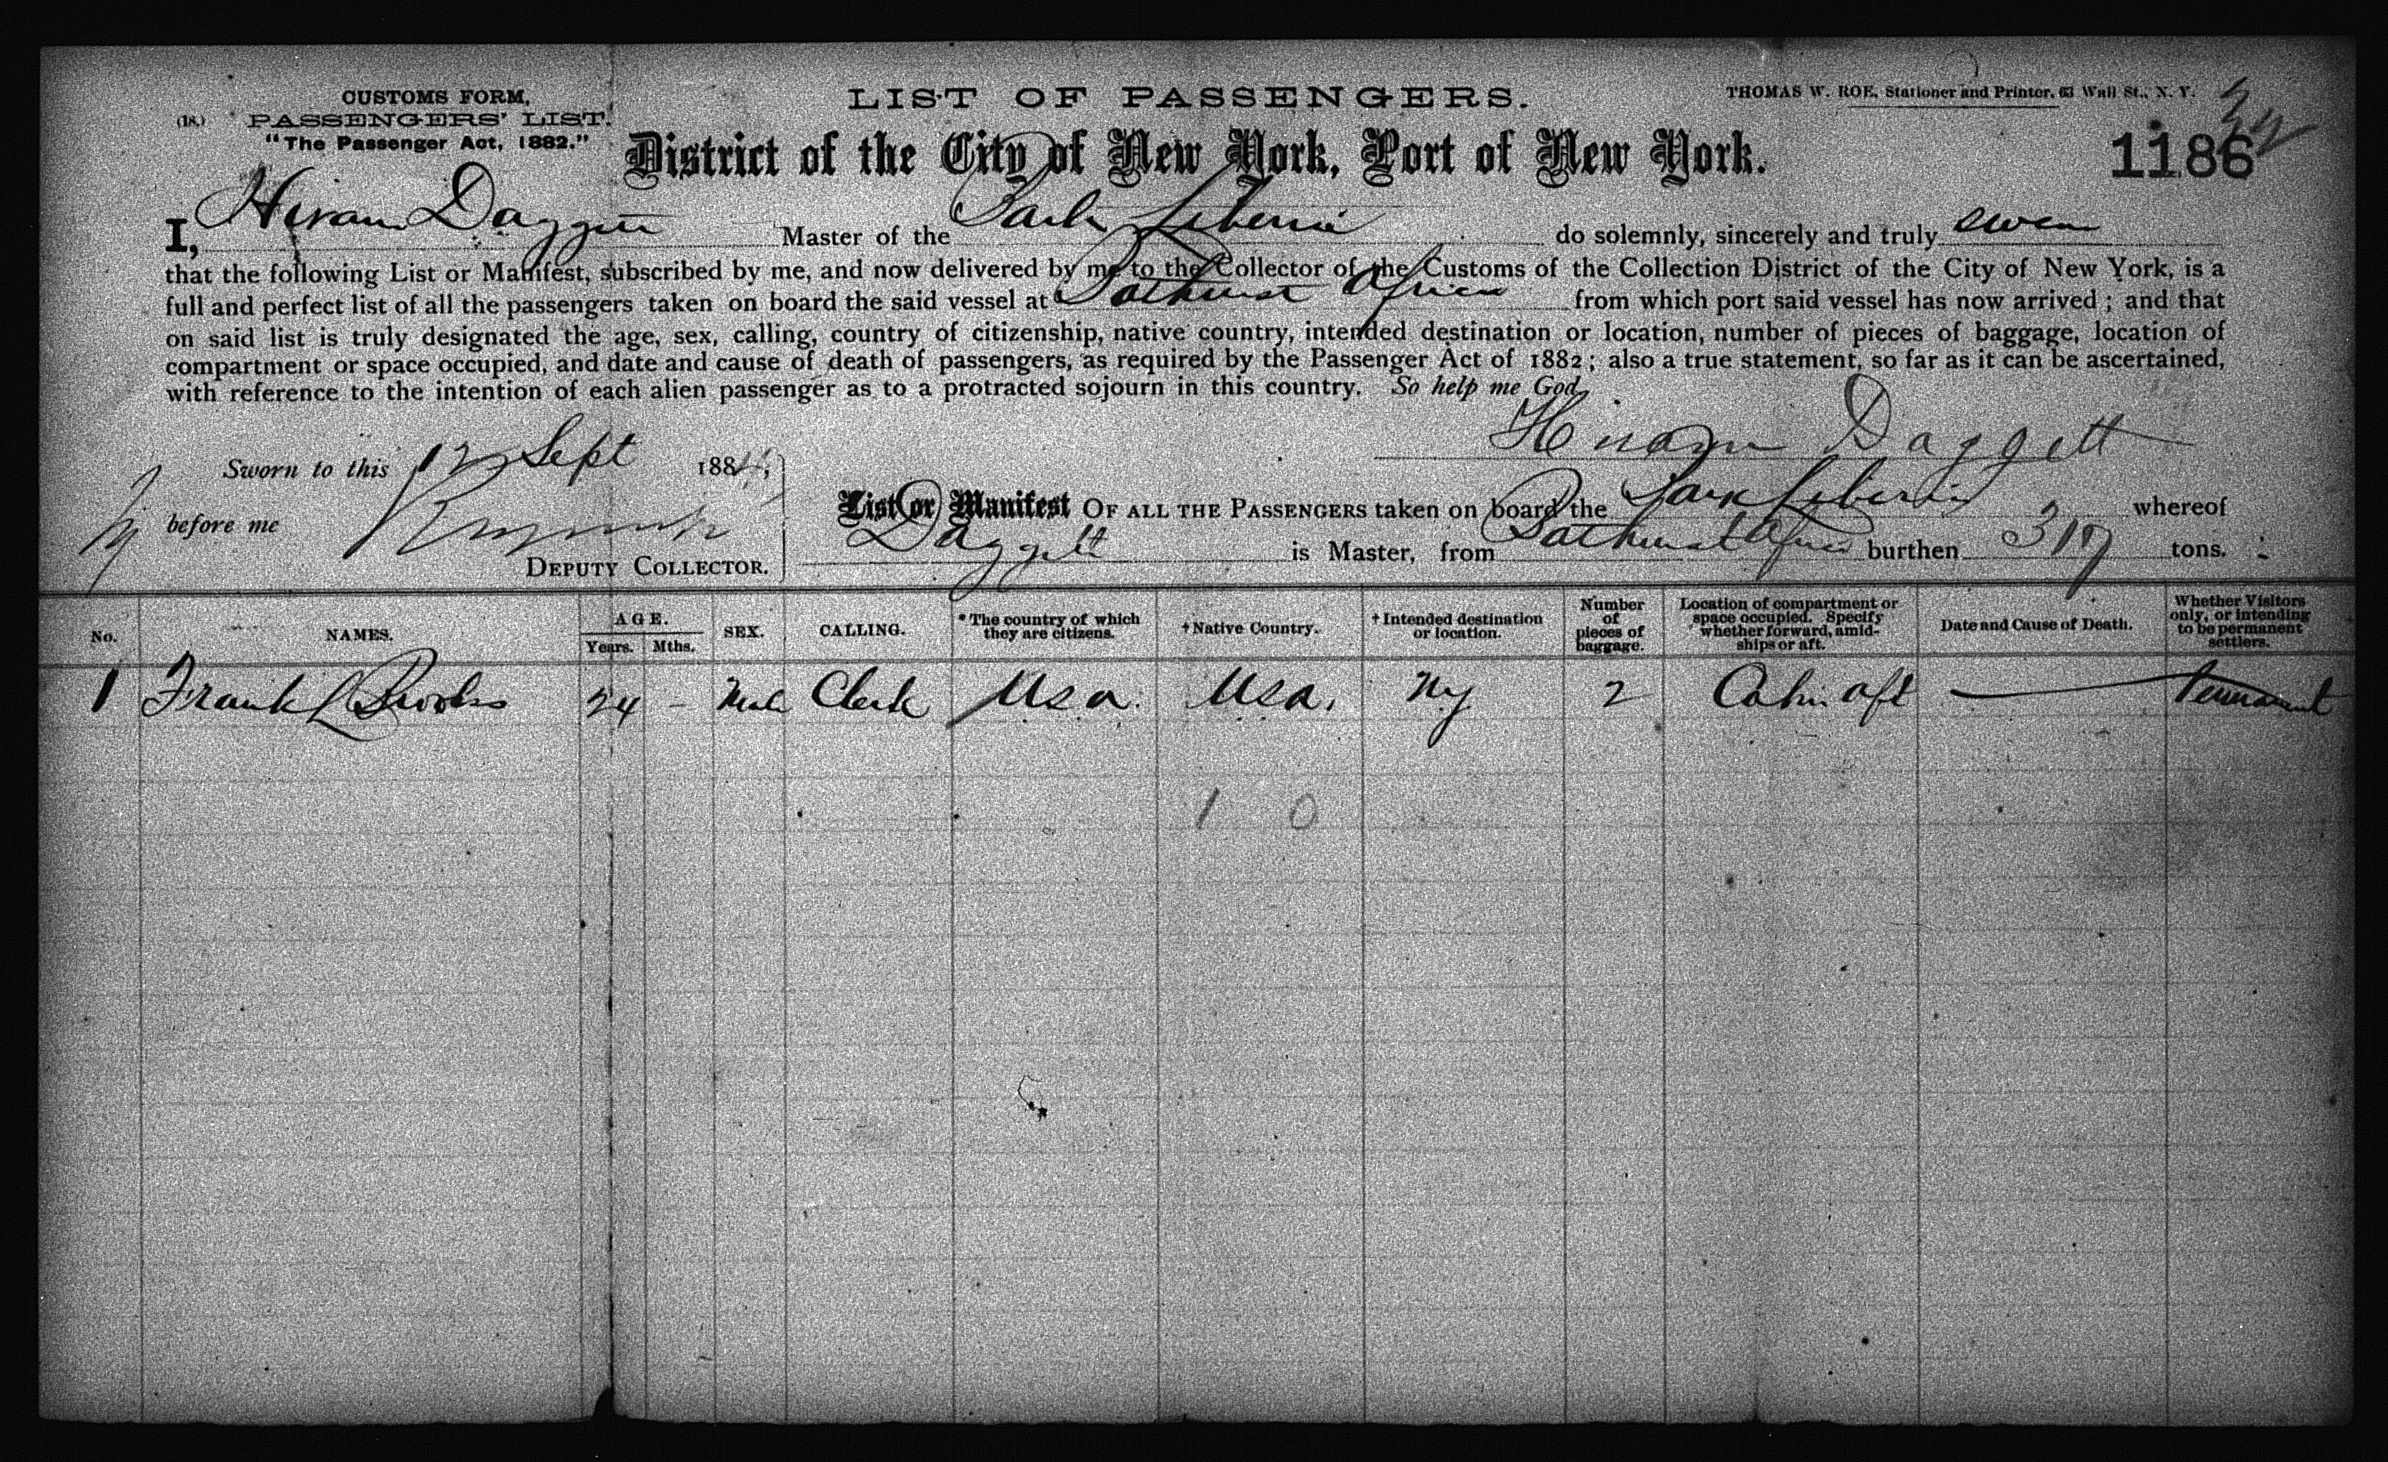 CUSTOMS FORM,
(18.) PASSENGERS' LIST.
"The Passenger Act, 1882."
LIST OF PASSENGERS.
THOMAS W. ROE, Stationer and Printer, 63 Wall St., N. Y.
District of the City of New York, Port of New York.
1186
I, Hiram Daggett Master of the Bark Liberia do solemnly, sincerely and truly swear
that the following List or Manifest, subscribed by me, and now delivered by me to the Collector of the Customs of the Collection District of the City of New York, is a
full and perfect list of all the passengers taken on board the said vessel at Bathurst Africa from which port said vessel has now arrived; and that
on said list is truly designated the age, sex, calling, country of citizenship, native country, intended destination or location, number of pieces of baggage, location of
compartment or space occupied, and date and cause of death of passengers, as required by the Passenger Act of 1882; also a true statement, so far as it can be ascertained,
with reference to the intention of each alien passenger as to a protracted sojourn in this country. So help me God,
Hiram Daggett
Sworn to this 12 Sept 1884,
before me
DEPUTY COLLECTOR.
List or Manifest OF ALL THE PASSENGERS taken on board the Bark Liberia whereof
Daggett is Master, from Bathurst Africa burthen 317 tons.
No. NAMES. AGE. Years. Mths. SEX. CALLING. *The country of which they are citizens. †Native Country. †Intended destination or location. Number of pieces of baggage. Location of compartment or space occupied. Specify whether forward, amidships or aft. Date and Cause of Death. Whether Visitors only, or intending to be permanent settlers.
1 Frank L Brooks 24 - Male Clerk Usa. Usa. Ny 2 Cabin aft — Permanent
1 0